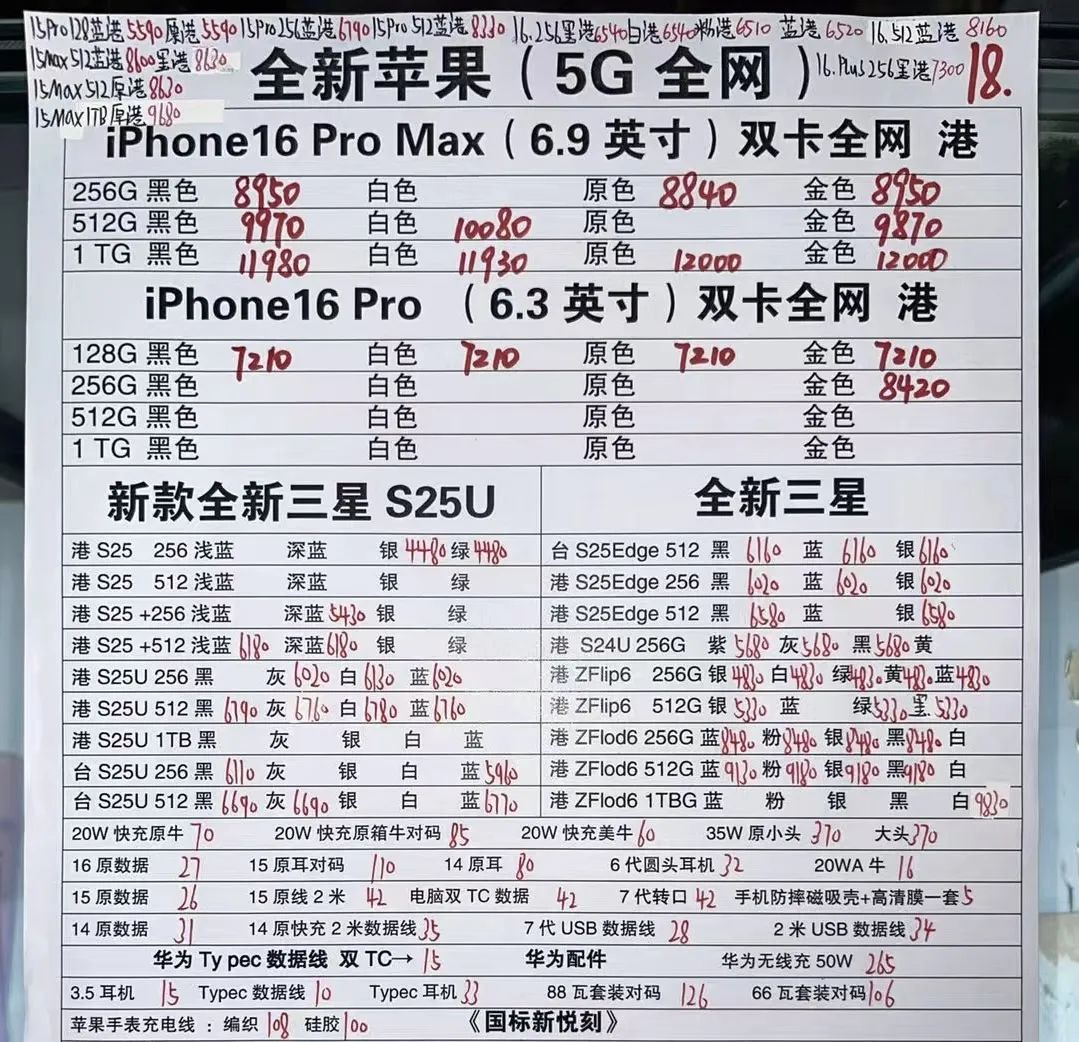 15Pro128蓝港5590原港5590 15Pro256蓝港6790 15Pro 512蓝港8330 16.256黑港6540白港6540粉港6510 蓝港6520 16.512蓝港 8160
15Max 512蓝港8600黑港8630
全新苹果（5G 全网）
16.Plus256黑港7300
18.
15Max 512原港8630
15Max 1TB原港9680
iPhone16 Pro Max（6.9 英寸）双卡全网 港
256G 黑色 8950 白色 原色 8840 金色 8950
512G 黑色 9970 白色 10080 原色 金色 9870
1 TG 黑色 11980 白色 11930 原色 12000 金色 12000
iPhone16 Pro （6.3 英寸）双卡全网 港
128G 黑色 7210 白色 7210 原色 7210 金色 7210
256G 黑色 白色 原色 金色 8420
512G 黑色 白色 原色 金色
1 TG 黑色 白色 原色 金色
新款全新三星 S25U
港 S25 256 浅蓝 深蓝 银 4480 绿 4480
港 S25 512 浅蓝 深蓝 银 绿
港 S25 +256 浅蓝 深蓝 5430 银 绿
港 S25 +512 浅蓝 6180 深蓝 6180 银 绿
港 S25U 256 黑 灰 6020 白 6130 蓝 6020
港 S25U 512 黑 6790 灰 6760 白 6780 蓝 6760
港 S25U 1TB 黑 灰 银 白 蓝
台 S25U 256 黑 6110 灰 银 白 蓝 5960
台 S25U 512 黑 6690 灰 6690 银 白 蓝 6770
全新三星
台 S25Edge 512 黑 6160 蓝 6160 银 6160
港 S25Edge 256 黑 6020 蓝 6020 银 6020
港 S25Edge 512 黑 6580 蓝 银 6580
港 S24U 256G 紫 5680 灰 5680 黑 5680 黄
港 ZFlip6 256G 银 4830 白 4830 绿 4830 黄 4830 蓝 4830
港 ZFlip6 512G 银 5330 蓝 绿 5330 黑 5330
港 ZFlod6 256G 蓝 8480 粉 8480 银 8480 黑 8480 白
港 ZFlod6 512G 蓝 9130 粉 9180 银 9180 黑 9180 白
港 ZFlod6 1TBG 蓝 粉 银 黑 白 9830
20W 快充原牛 70 20W 快充原箱牛对码 85 20W 快充美牛 60 35W 原小头 370 大头 370
16 原数据 27 15 原耳对码 110 14 原耳 80 6 代圆头耳机 32 20WA 牛 16
15 原数据 26 15 原线 2 米 42 电脑双 TC 数据 42 7 代转口 42 手机防摔磁吸壳+高清膜一套 5
14 原数据 31 14 原快充 2 米数据线 35 7 代 USB 数据线 28 2 米 USB 数据线 34
华为 Ty pec 数据线 双 TC→ 15 华为配件 华为无线充 50W 265
3.5 耳机 15 Typec 数据线 10 Typec 耳机 33 88 瓦套装对码 126 66 瓦套装对码 106
苹果手表充电线 ：编织 108 硅胶 100 《国标新悦刻》